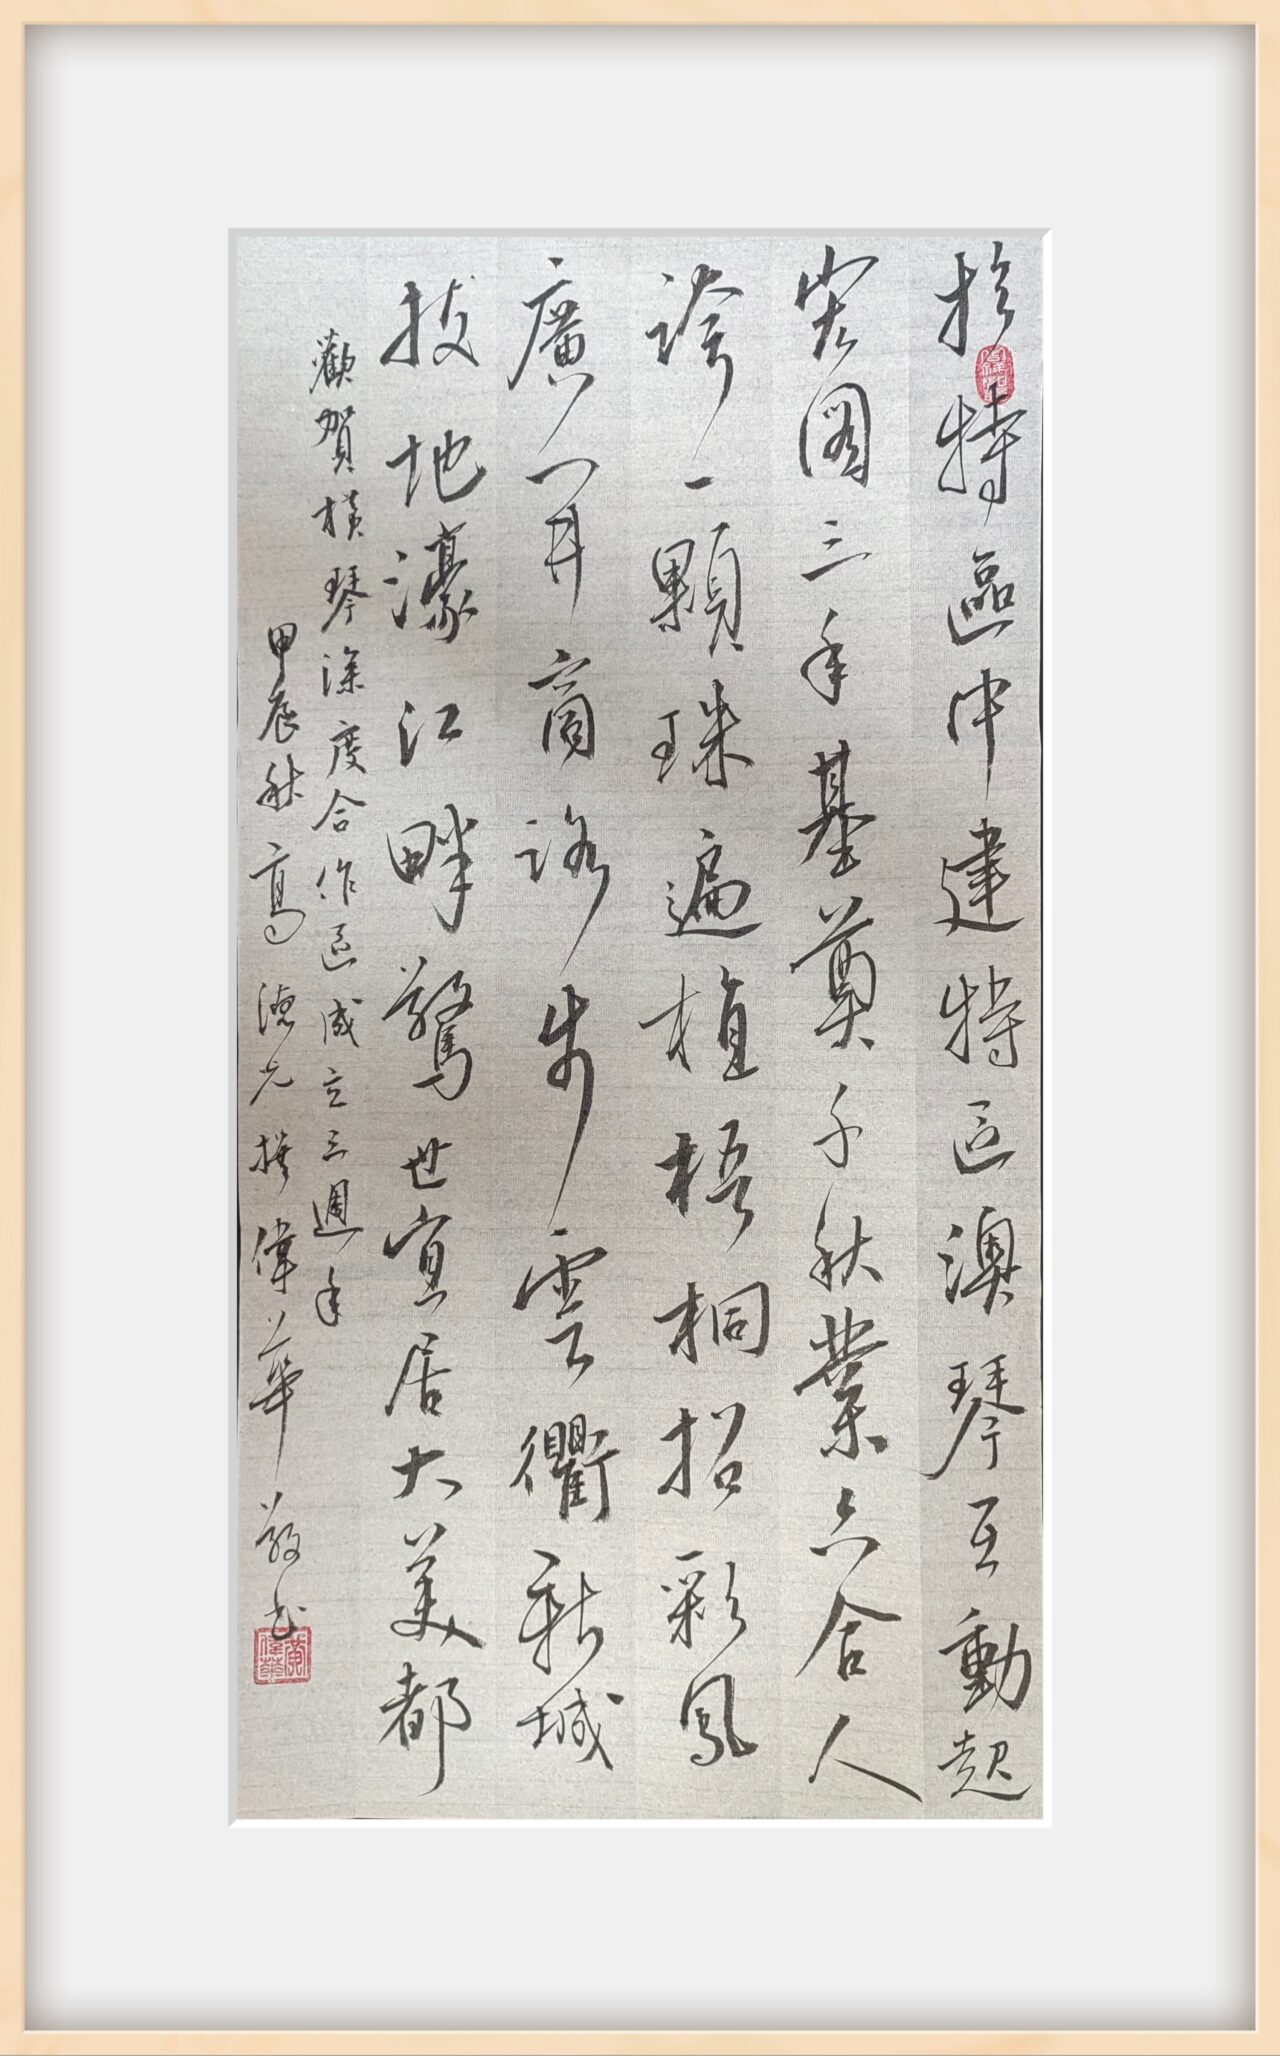 於特區中建特區澳琴互動起
宏圖三年基奠千秋業六合人
誇一顆珠遍植梧桐招彩鳳
廣開商路步雲衢新城
拔地濠江畔驚世宜居大美都
歡賀橫琴深度合作區成立三週年
甲辰秋高德光撰偉華敬書
黃偉華